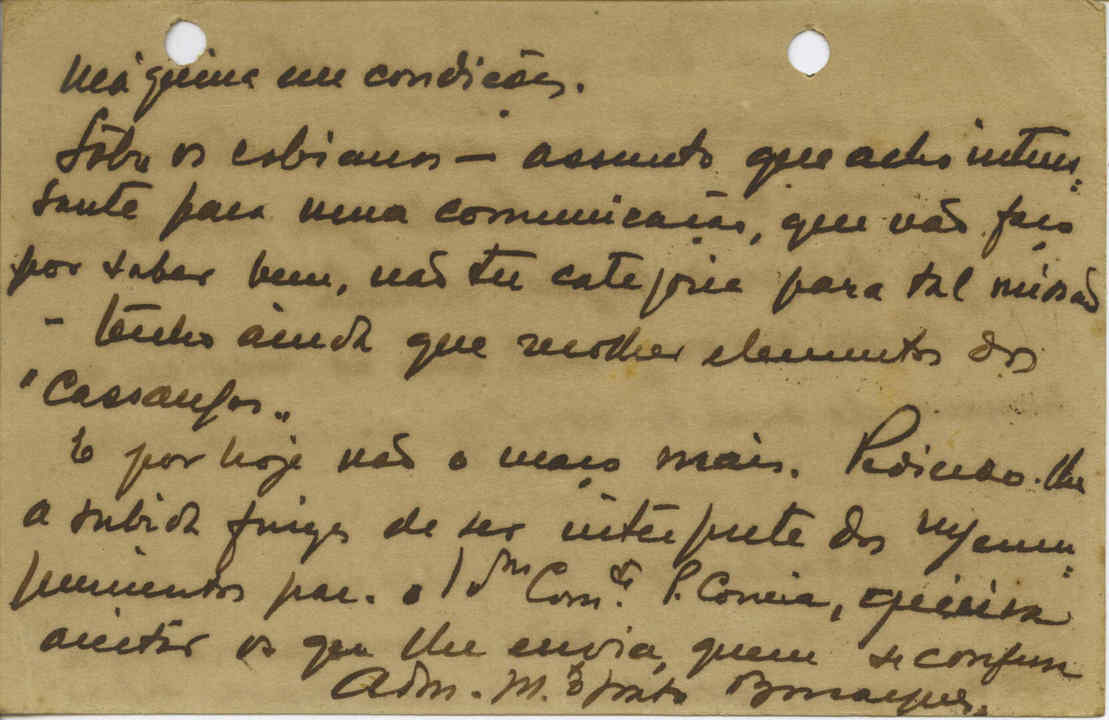 máquina em condições.
Sôbre os cobianos — assunto que acho interes=
sante para uma comunicação, que não faço
por saber bem, não ter categoria para tal missão
- tenho ainda que recolher elementos dos
"Cassangas"
E por hoje não o maço mais. Pedindo-lhe
a subida fineza de ser intérprete dos meus
cumprimentos para o Com.te P. Correia, queira
aceitar os que lhe envia, quem se confessa
Adm. M.to